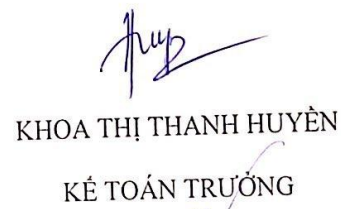 Huyền
KHOA THỊ THANH HUYỀN
KẾ TOÁN TRƯỞNG